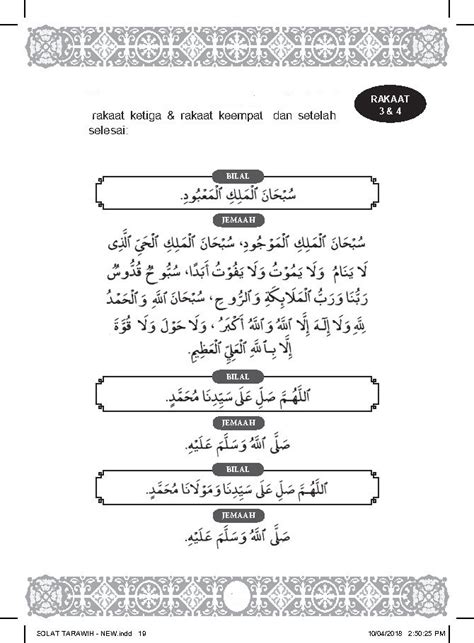 RAKAAT
3 & 4
rakaat ketiga & rakaat keempat dan setelah
selesai:
BILAL
سُبْحَانَ ٱلْمَلِكِ ٱلْمَعْبُودِ.
JEMAAH
سُبْحَانَ ٱلْمَلِكِ ٱلْمَوْجُودِ، سُبْحَانَ ٱلْمَلِكِ ٱلْحَيِّ ٱلَّذِى
لَا يَنَامُ وَلَا يَمُوْتُ وَلَا يَفُوْتُ أَبَدًا، سُبُّوحٌ قُدُّوسٌ
رَبُّنَا وَرَبُّ ٱلْمَلَابِكَةِ وَٱلرُّوحِ، سُبْحَانَ ٱللَّهِ وَٱلْحَمْدُ
لِلَّهِ وَلَا إِلَـٰهَ إِلَّا ٱللَّهُ وَٱللَّهُ أَكْبَرُ، وَلَا حَوْلَ وَلَا قُوَّةَ
إِلَّا بِٱللَّهِ ٱلْعَلِيِّ ٱلْعَظِيْمِ.
BILAL
ٱللَّهُمَّ صَلِّ عَلَى سَيِّدِنَا مُحَمَّدٍ.
JEMAAH
صَلَّى ٱللَّهُ وَسَلَّمَ عَلَيْهِ.
BILAL
ٱللَّهُمَّ صَلِّ عَلَى سَيِّدِنَا وَمَوْلَانَا مُحَمَّدٍ.
JEMAAH
صَلَّى ٱللَّهُ وَسَلَّمَ عَلَيْهِ.
SOLAT TARAWIH - NEW.indd 19
10/04/2018 2:50:25 PM